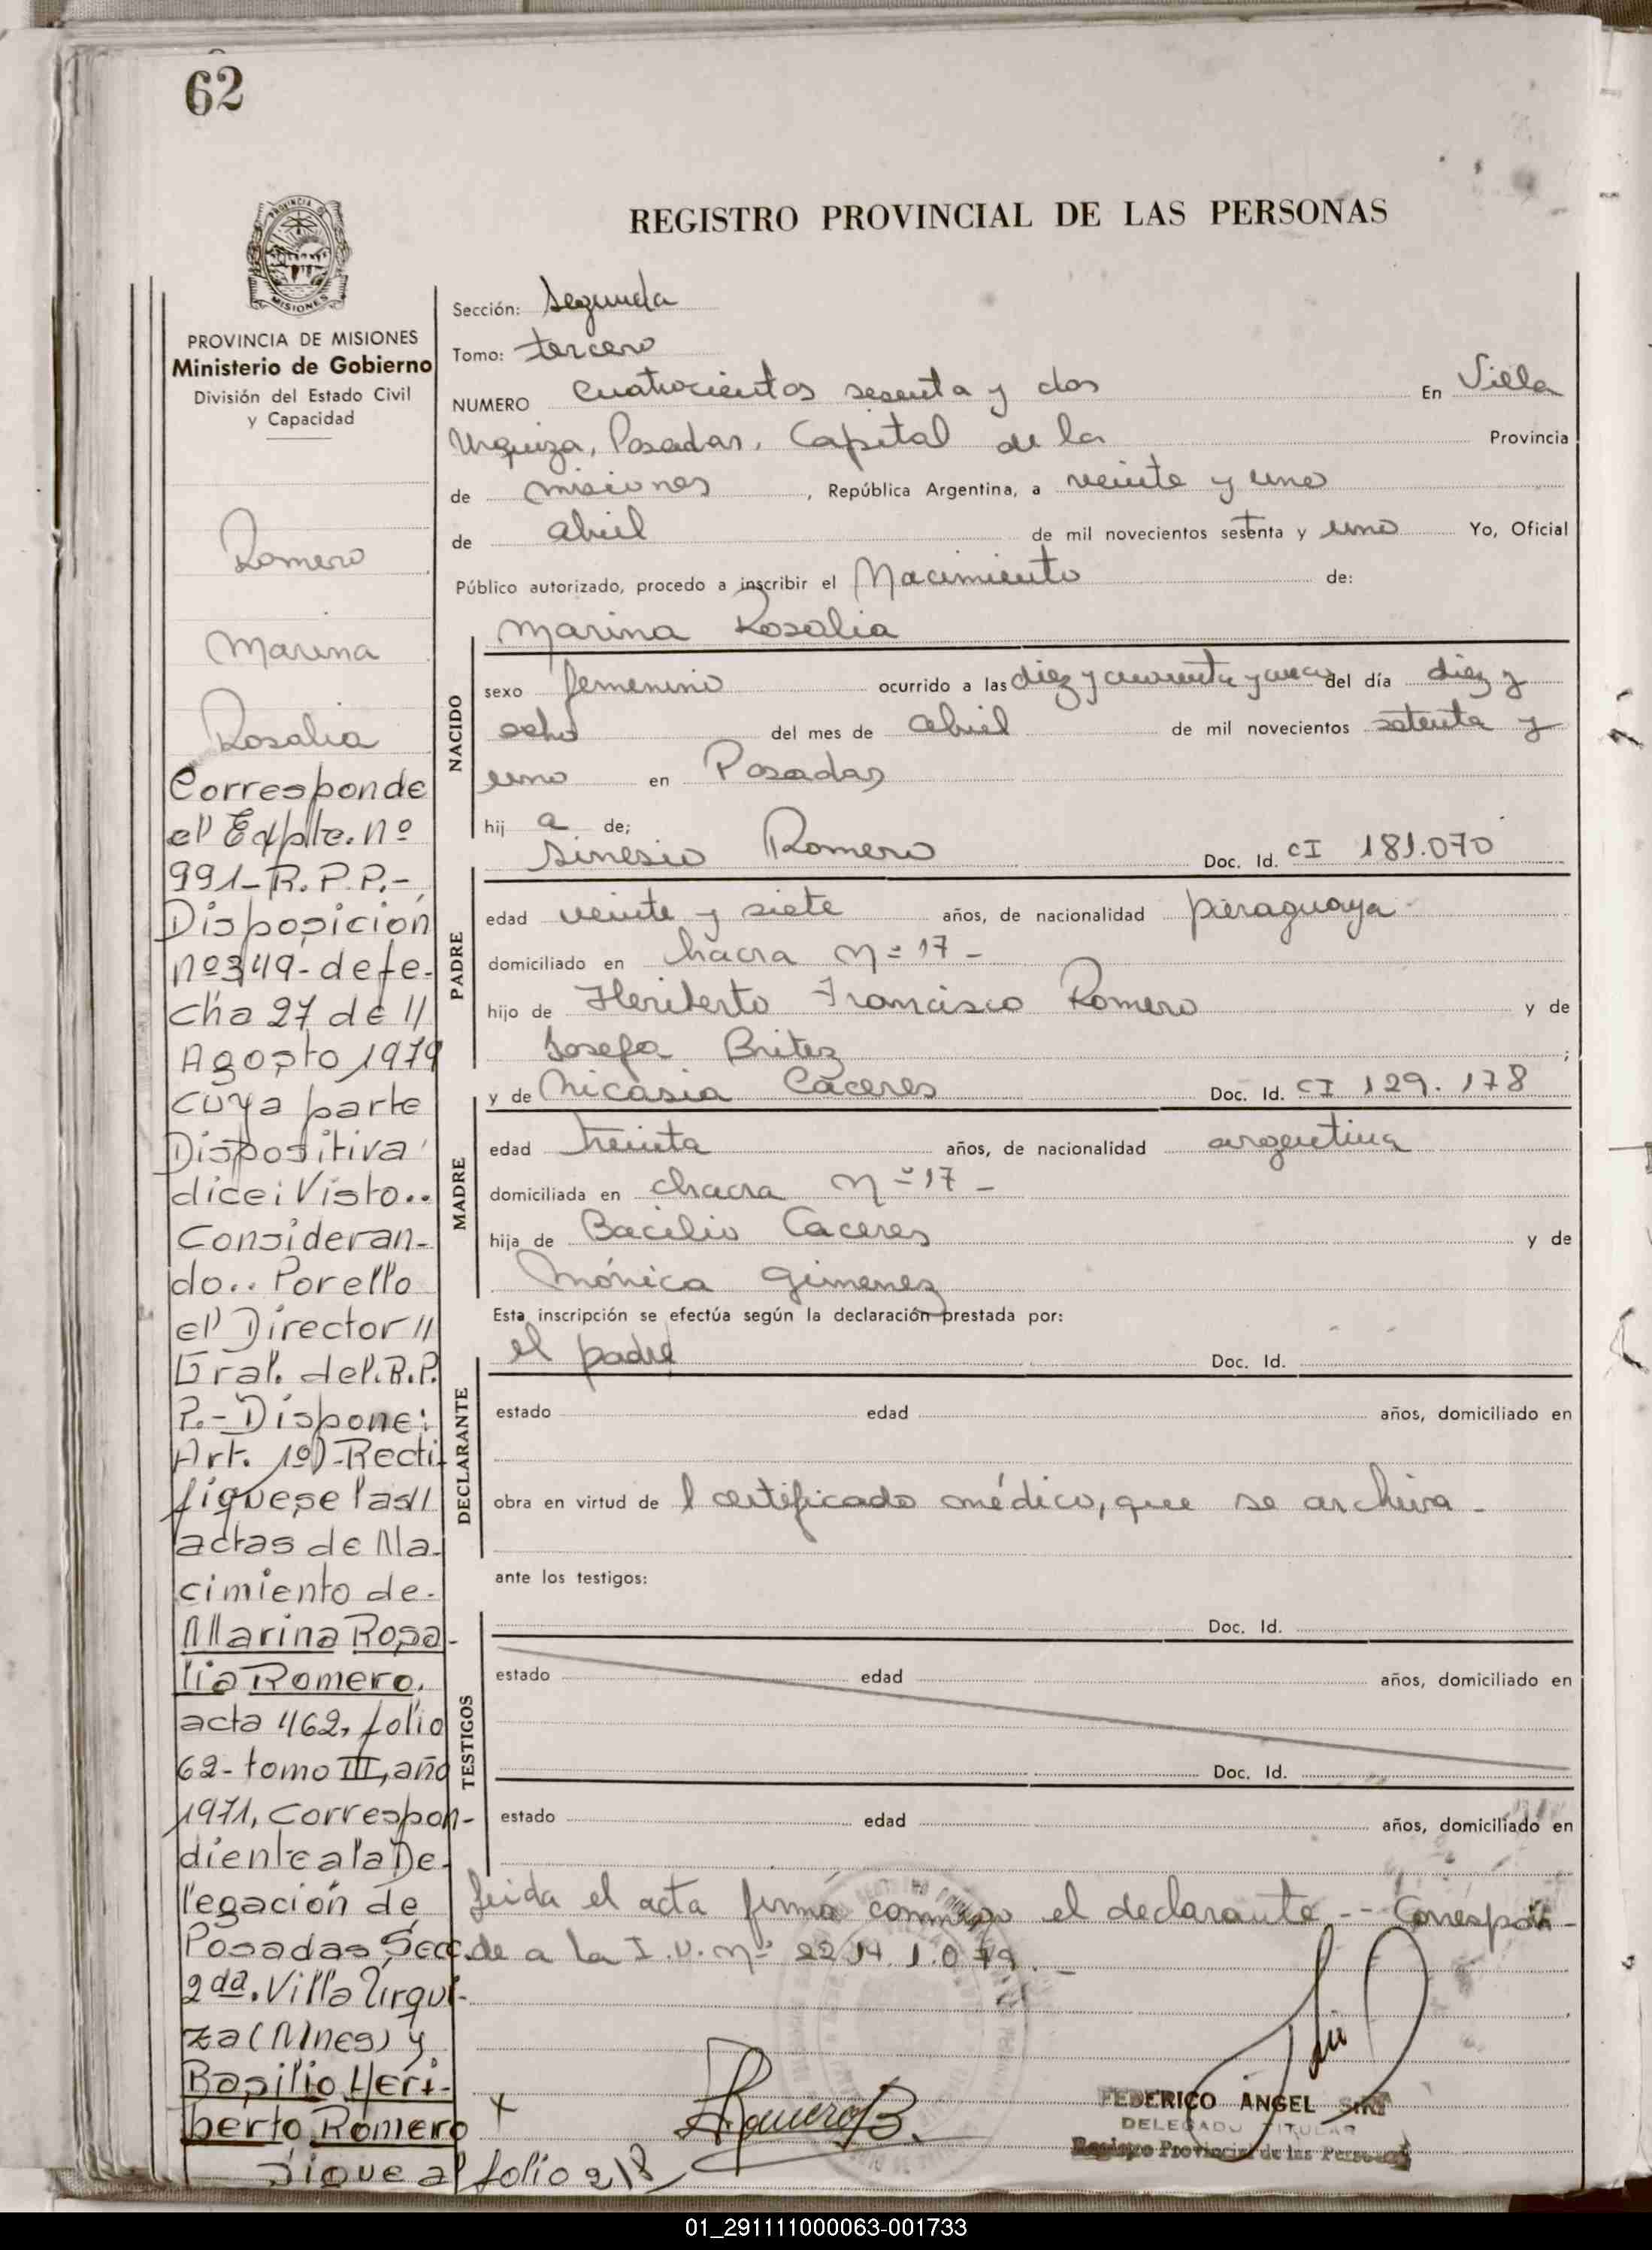 62
REGISTRO PROVINCIAL DE LAS PERSONAS
PROVINCIA DE
MISIONES
PROVINCIA DE MISIONES
Ministerio de Gobierno
División del Estado Civil
y Capacidad
Romero
Marina
Rosalia
Corresponde
el Expte. nº
991-R.P.P.-
Disposición
nº 349- de fe-
cha 27 de //
Agosto 1979
cuya parte
Dispositiva
dice: Visto..
Consideran-
do.. Por ello
el Director //
Gral. del. R.P.
P.- Dispone:
Art. 1º)-Recti-
fiquese las //
actas de Na-
cimiento de-
Marina Rosa-
lia Romero,
acta 462, folio
62- tomo III, año
1971, correspon-
diente a la De-
legación de
Posadas Secc.
2da. Villa Urqui-
za (Mnes) y
Basilio Heri-
berto Romero
Sigue al folio 218
Sección: Segunda
Tomo: tercero
NUMERO cuatrocientos sesenta y dos En Villa
Urquiza, Posadas, Capital de la Provincia
de misiones, República Argentina, a veinte y uno
de abril de mil novecientos setenta y uno Yo, Oficial
Público autorizado, procedo a inscribir el Nacimiento de:
Marina Rosalia
NACIDO
sexo femenino ocurrido a las diez y cuarenta y del día diez y
ocho del mes de abril de mil novecientos setenta y
uno en Posadas
hij a de;
Sinesio Romero Doc. Id. CI 181.070
PADRE
edad veinte y siete años, de nacionalidad paraguaya
domiciliado en chacra nº 17 -
hijo de Heriberto Francisco Romero y de
Josefa Britez ;
y de Nicasia Cáceres Doc. Id. CI 129.178
MADRE
edad treinta años, de nacionalidad argentina
domiciliada en chacra nº 17 -
hija de Bacilio Caceres y de
Mónica Gimenez
Esta inscripción se efectúa según la declaración prestada por:
el padre Doc. Id.
DECLARANTE
estado edad años, domiciliado en
obra en virtud de l certificado médico, que se archiva -
ante los testigos:
TESTIGOS
Doc. Id.
estado edad años, domiciliado en
Doc. Id.
estado edad años, domiciliado en
Leida el acta firma conmigo el declarante -- Correspon-
de a la I.U. nº 22.14 1.079.-
X
Romero B.
FEDERICO ANGEL
DELEGADO TITULAR
Registro Provincial de las Personas
01_291111000063-001733